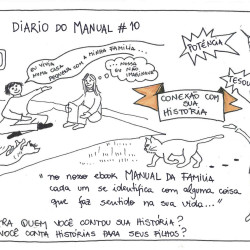 DIARIO DO MANUAL #10
EU VIVIA
NUMA CASA
PEQUENA COM A MINHA FAMÍLIA...
... NOSSA
EU NÃO
IMAGINAVA
POTÊNCIA
TESOU
CONEXÃO COM
SUA
HISTÓRIA
"no nosso ebook MANUAL DA FAMÍLIA
cada um se identifica com alguma coisa
que faz sentido na sua vida..."
RA QUEM VOCÊ CONTOU SUA HISTÓRIA?
VOCÊ CONTA HISTÓRIAS PARA SEUS FILHOS?